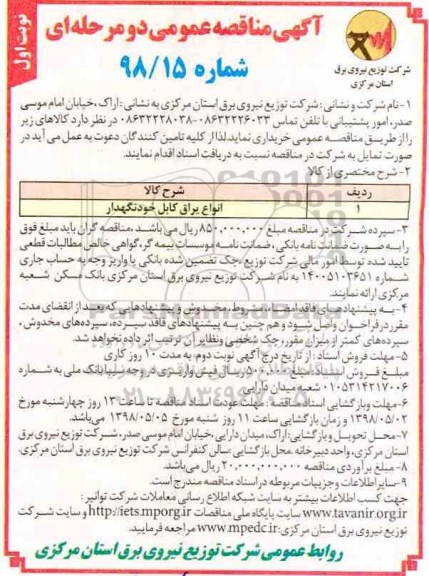 نوبت اول
آگهی مناقصه عمومی دو مرحله ای
شماره ۹۸/۱۵
شرکت توزیع نیروی برق
استان مرکزی
۱-نام شرکت و نشانی: شرکت توزیع نیروی برق استان مرکزی به نشانی: اراک، خیابان امام موسی
صدر، امور پشتیبانی با تلفن تماس ۰۸۶۳۲۲۲۶۰۳۳-۰۸۶۳۲۲۲۸۰۳۸ در نظر دارد کالاهای زیر
را از طریق مناقصه عمومی خریداری نماید. لذا از کلیه تامین کنندگان دعوت به عمل می آید در
صورت تمایل به شرکت در مناقصه نسبت به دریافت اسناد اقدام نمایند.
۲-شرح مختصری از کالا
ردیف شرح کالا
۱ انواع یراق کابل خودنگهدار
۳-سپرده شرکت در مناقصه مبلغ ۸۵۰,۰۰۰,۰۰۰ ریال می باشد، مناقصه گران باید مبلغ فوق
را به صورت ضمانت نامه بانکی، ضمانت نامه موسسات بیمه گر، گواهی خالص مطالبات قطعی
تایید شده توسط امور مالی شرکت توزیع، چک تضمین شده بانکی یا واریز وجه به حساب جاری
شماره ۱۴۰۰۵۱۰۳۶۵۱ به نام شرکت توزیع نیروی برق استان مرکزی بانک مسکن شعبه
مرکزی ارائه نمایند.
۴-به پیشنهادهای فاقد امضاء، مشروط، مخدوش و پیشنهادهایی که بعد از انقضای مدت
مقرر در فراخوان واصل شود و هم چنین به پیشنهادهای فاقد سپرده، سپرده های مخدوش،
سپرده های کمتر از میزان مقرر، چک شخصی ونظایر آن ترتیب اثر داده نخواهد شد.
۵-مهلت فروش اسناد: از تاریخ درج آگهی نوبت دوم به مدت ۱۰ روز کاری
مبلغ فروش اسناد: مبلغ ۵۰۰,۰۰۰ ریال فیش واریزی در وجه سیبا بانک ملی به شماره
۰۱۰۵۳۱۴۲۱۷۰۰۶ شعبه میدان دارایی
۶-مهلت وبازگشایی اسناد مناقصه: مهلت عودت اسناد مناقصه تا ساعت ۱۳ روز چهارشنبه مورخ
۱۳۹۸/۰۵/۰۲ و زمان بازگشایی ساعت ۱۱ روز شنبه مورخ ۱۳۹۸/۰۵/۰۵ می باشد.
۷-محل تحویل و بازگشایی: اراک، میدان دارایی، خیابان امام موسی صدر، شرکت توزیع نیروی برق
استان مرکزی، واحد دبیرخانه. محل بازگشایی: سالن کنفرانس شرکت توزیع نیروی برق استان مرکزی.
۸-مبلغ برآوردی مناقصه ۲۰,۰۰۰,۰۰۰,۰۰۰ ریال می باشد.
۹-سایر اطلاعات و جزییات مربوطه در اسناد مناقصه مندرج است.
جهت کسب اطلاعات بیشتر به سایت شبکه اطلاع رسانی معاملات شرکت توانیر:
www.tavanir.org.ir سایت پایگاه ملی مناقصات http://iets.mporg.ir و سایت شرکت
توزیع نیروی برق استان مرکزی: www.mpedc.ir مراجعه فرمایید.
روابط عمومی شرکت توزیع نیروی برق استان مرکزی